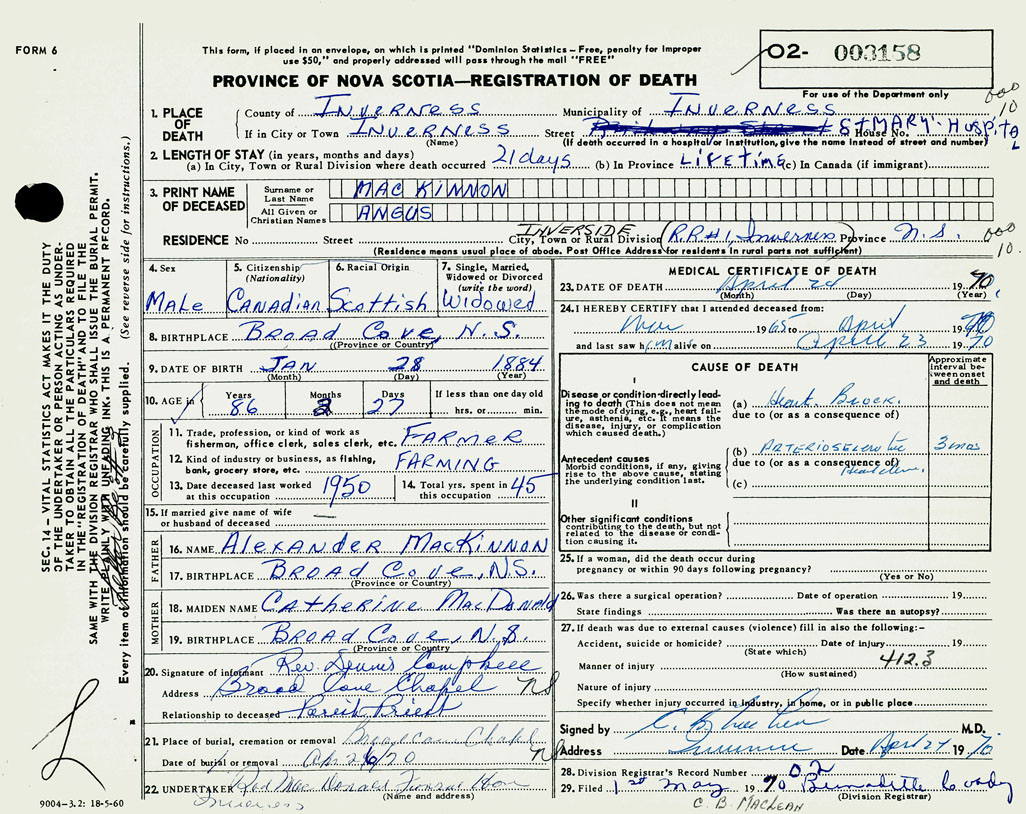 FORM 6
This form, if placed in an envelope, on which is printed "Dominion Statistics – Free, penalty for improper
use $50," and properly addressed will pass through the mail "FREE"
O2- 003158
For use of the Department only
PROVINCE OF NOVA SCOTIA—REGISTRATION OF DEATH
000
10
1. PLACE OF DEATH
County of Inverness Municipality of Inverness
If in City or Town Inverness Street St Mary's Hospital House No.
(Name) (If death occurred in a hospital or institution, give the name instead of street and number)
2. LENGTH OF STAY (in years, months and days)
(a) In City, Town or Rural Division where death occurred 21 days (b) In Province Lifetime (c) In Canada (if immigrant)
3. PRINT NAME OF DECEASED
Surname or Last Name MAC KINNON
All Given or Christian Names ANGUS
INVERSIDE
RESIDENCE No Street City, Town or Rural Division R.R.#1, Inverness Province N.S.
000
10.
(Residence means usual place of abode. Post Office Address for residents in rural parts not sufficient)
4. Sex Male
5. Citizenship (Nationality) Canadian
6. Racial Origin Scottish
7. Single, Married, Widowed or Divorced (write the word) Widowed
8. BIRTHPLACE Broad Cove, N.S.
(Province or Country)
9. DATE OF BIRTH Jan 28 1884
(Month) (Day) (Year)
10. AGE in Years 86 Months 2 Days 27 If less than one day old hrs. or min.
OCCUPATION
11. Trade, profession, or kind of work as
fisherman, office clerk, sales clerk, etc. Farmer
12. Kind of industry or business, as fishing,
bank, grocery store, etc. Farming
13. Date deceased last worked at this occupation 1950
14. Total yrs. spent in this occupation 45
15. If married give name of wife
or husband of deceased —
FATHER
16. NAME Alexander MacKinnon
17. BIRTHPLACE Broad Cove, N.S.
(Province or Country)
MOTHER
18. MAIDEN NAME Catherine MacDonald
19. BIRTHPLACE Broad Cove, N.S.
(Province or Country)
20. Signature of informant Rev. Dennis Campbell
Address Broad Cove Chapel NS
Relationship to deceased Parish Priest
21. Place of burial, cremation or removal Broad Cove Chapel
Date of burial or removal Apr 26/70 NS
22. UNDERTAKER Mac Donald Funeral Home
(Name and address)
Inverness
MEDICAL CERTIFICATE OF DEATH
23. DATE OF DEATH April 24 1970
(Month) (Day) (Year)
24. I HEREBY CERTIFY that I attended deceased from:
1965 to April 1970
and last saw him alive on April 23 1970
CAUSE OF DEATH
Approximate interval between onset and death
I
Disease or condition directly leading to death (This does not mean the mode of dying, e.g., heart failure, asthenia, etc. It means the disease, injury, or complication which caused death.)
(a) Heart Block.
due to (or as a consequence of)
Antecedent causes
Morbid conditions, if any, giving rise to the above cause, stating the underlying condition last.
(b) 3 mos
due to (or as a consequence of)
(c)
II
Other significant conditions
contributing to the death, but not related to the disease or condition causing it.
25. If a woman, did the death occur during
pregnancy or within 90 days following pregnancy?
(Yes or No)
26. Was there a surgical operation? Date of operation 19
State findings Was there an autopsy?
27. If death was due to external causes (violence) fill in also the following:–
Accident, suicide or homicide? Date of injury 19
(State which)
412.3
Manner of injury
(How sustained)
Nature of injury
Specify whether injury occurred in industry, in home, or in public place
Signed by M.D.
Address Inverness Date April 24 1970
28. Division Registrar's Record Number 02
29. Filed 1st May 1970 Bernadette
(Division Registrar)
C. B. MacLean
SEC. 14 – VITAL STATISTICS ACT MAKES IT THE DUTY
OF THE UNDERTAKER OR PERSON ACTING AS UNDERTAKER TO OBTAIN ALL THE PARTICULARS REQUIRED
IN THE "REGISTRATION OF DEATH" AND TO FILE THE
SAME WITH THE DIVISION REGISTRAR WHO SHALL ISSUE THE BURIAL PERMIT.
WRITE PLAINLY WITH UNFADING INK. THIS IS A PERMANENT RECORD.
Every item of information should be carefully supplied. (See reverse side for instructions.)
9004-3.2: 18-5-60